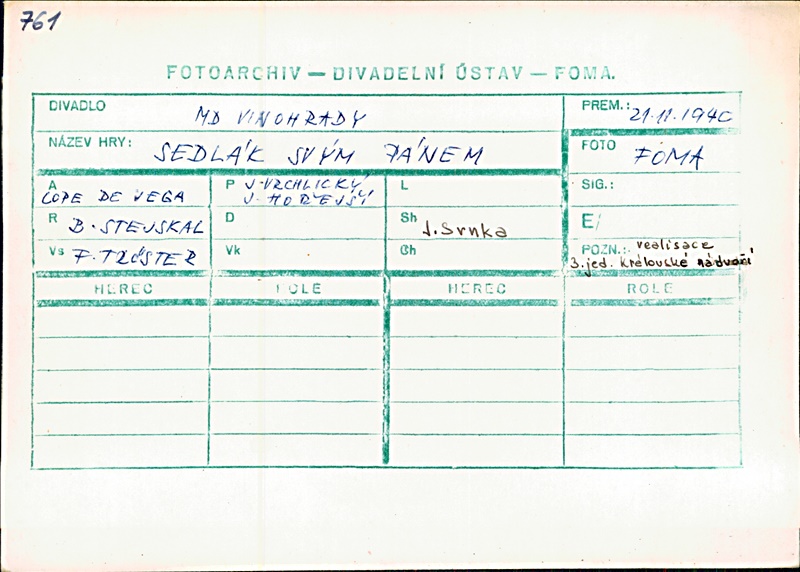 761
FOTOARCHIV — DIVADELNÍ ÚSTAV — FOMA.
DIVADLO MD VINOHRADY PREM.: 21.11.1940
NÁZEV HRY: SEDLÁK SVÝM PÁNEM FOTO FOMA
A LOPE DE VEGA P J. VRCHLICKÝ L SIG.:
J. HOŘEJŠÍ
R B. STEJSKAL D Sh J. Srnka E/
Vs F. TRÖSTER Vk Ch POZN.: realisace
3. jed. Královské nádvoří
HEREC ROLE HEREC ROLE